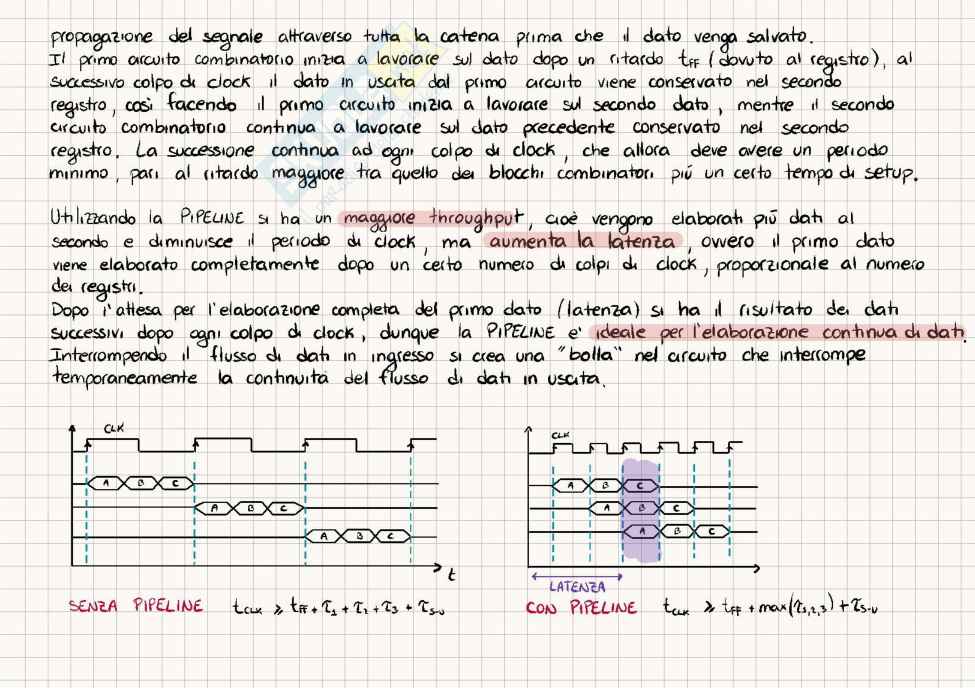 propagazione del segnale attraverso tutta la catena prima che il dato venga salvato.
Il primo circuito combinatorio inizia a lavorare sul dato dopo un ritardo tFF (dovuto al registro), al
successivo colpo di clock il dato in uscita dal primo circuito viene conservato nel secondo
registro, così facendo il primo circuito inizia a lavorare sul secondo dato, mentre il secondo
circuito combinatorio continua a lavorare sul dato precedente conservato nel secondo
registro. La successione continua ad ogni colpo di clock, che allora deve avere un periodo
minimo, pari al ritardo maggiore tra quello dei blocchi combinatori più un certo tempo di setup.
Utilizzando la PIPELINE si ha un maggiore throughput, cioè vengono elaborati più dati al
secondo e diminuisce il periodo di clock, ma aumenta la latenza, ovvero il primo dato
viene elaborato completamente dopo un certo numero di colpi di clock, proporzionale al numero
dei registri.
Dopo l'attesa per l'elaborazione completa del primo dato (latenza) si ha il risultato dei dati
successivi dopo ogni colpo di clock, dunque la PIPELINE e' ideale per l'elaborazione continua di dati.
Interrompendo il flusso di dati in ingresso si crea una "bolla" nel circuito che interrompe
temporaneamente la continuità del flusso di dati in uscita.
CLK
A B C
A B C
A B C
t
SENZA PIPELINE tCLK ≥ tFF + τ1 + τ2 + τ3 + τS-U
CLK
A B C
A B C
A B C
LATENZA
CON PIPELINE tCLK ≥ tFF + max(τ1,2,3) + τS-U